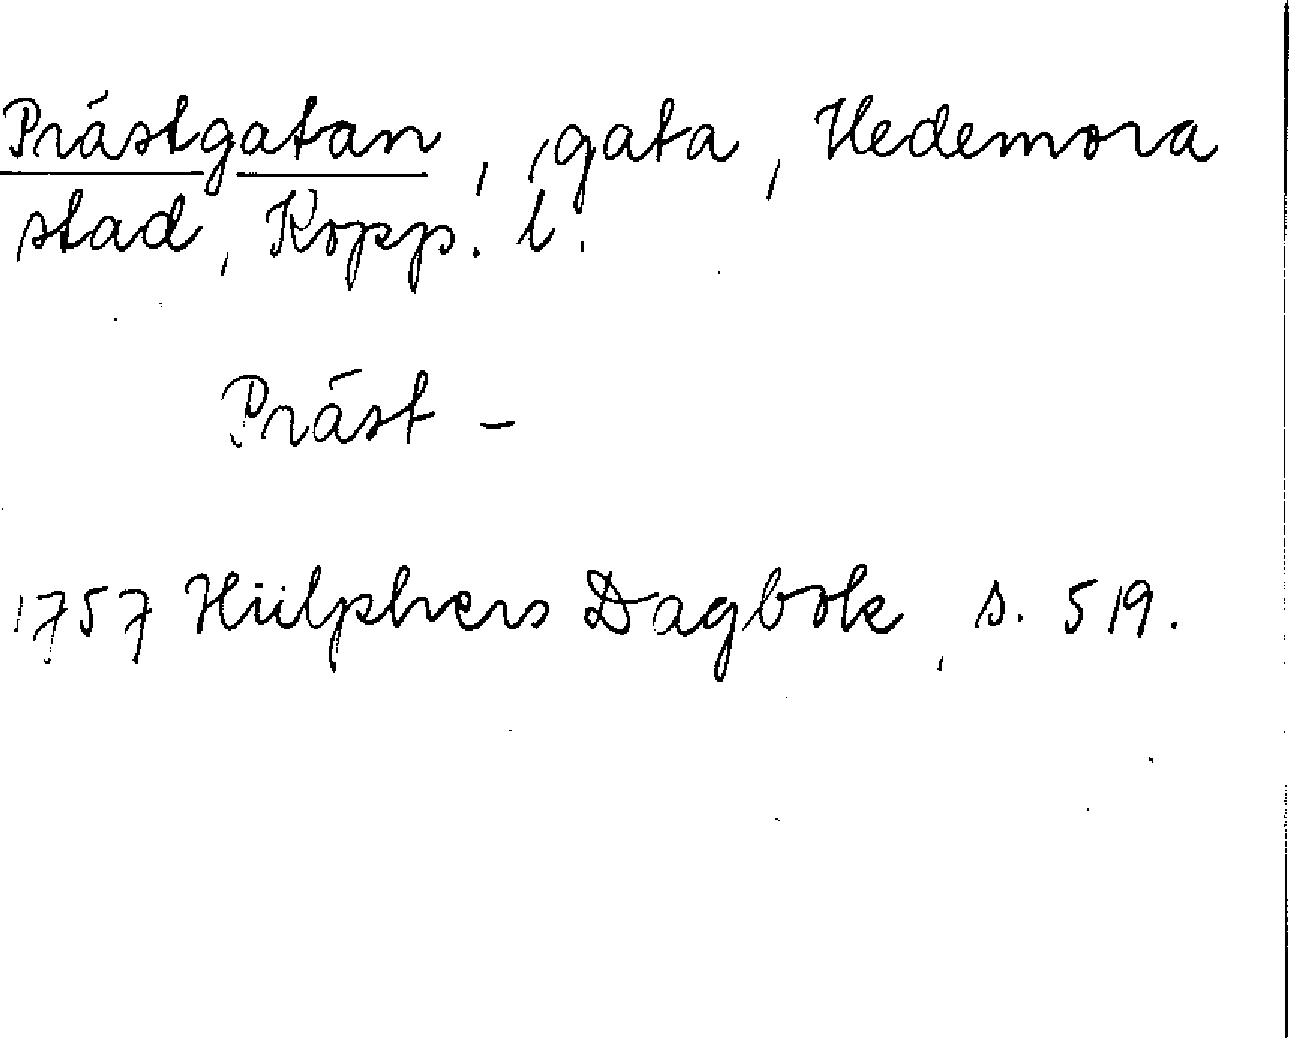 Prästgatan, gata, Hedemora
stad, Kopp. l.
Präst -
1757 Hülphers Dagbok, s. 519.